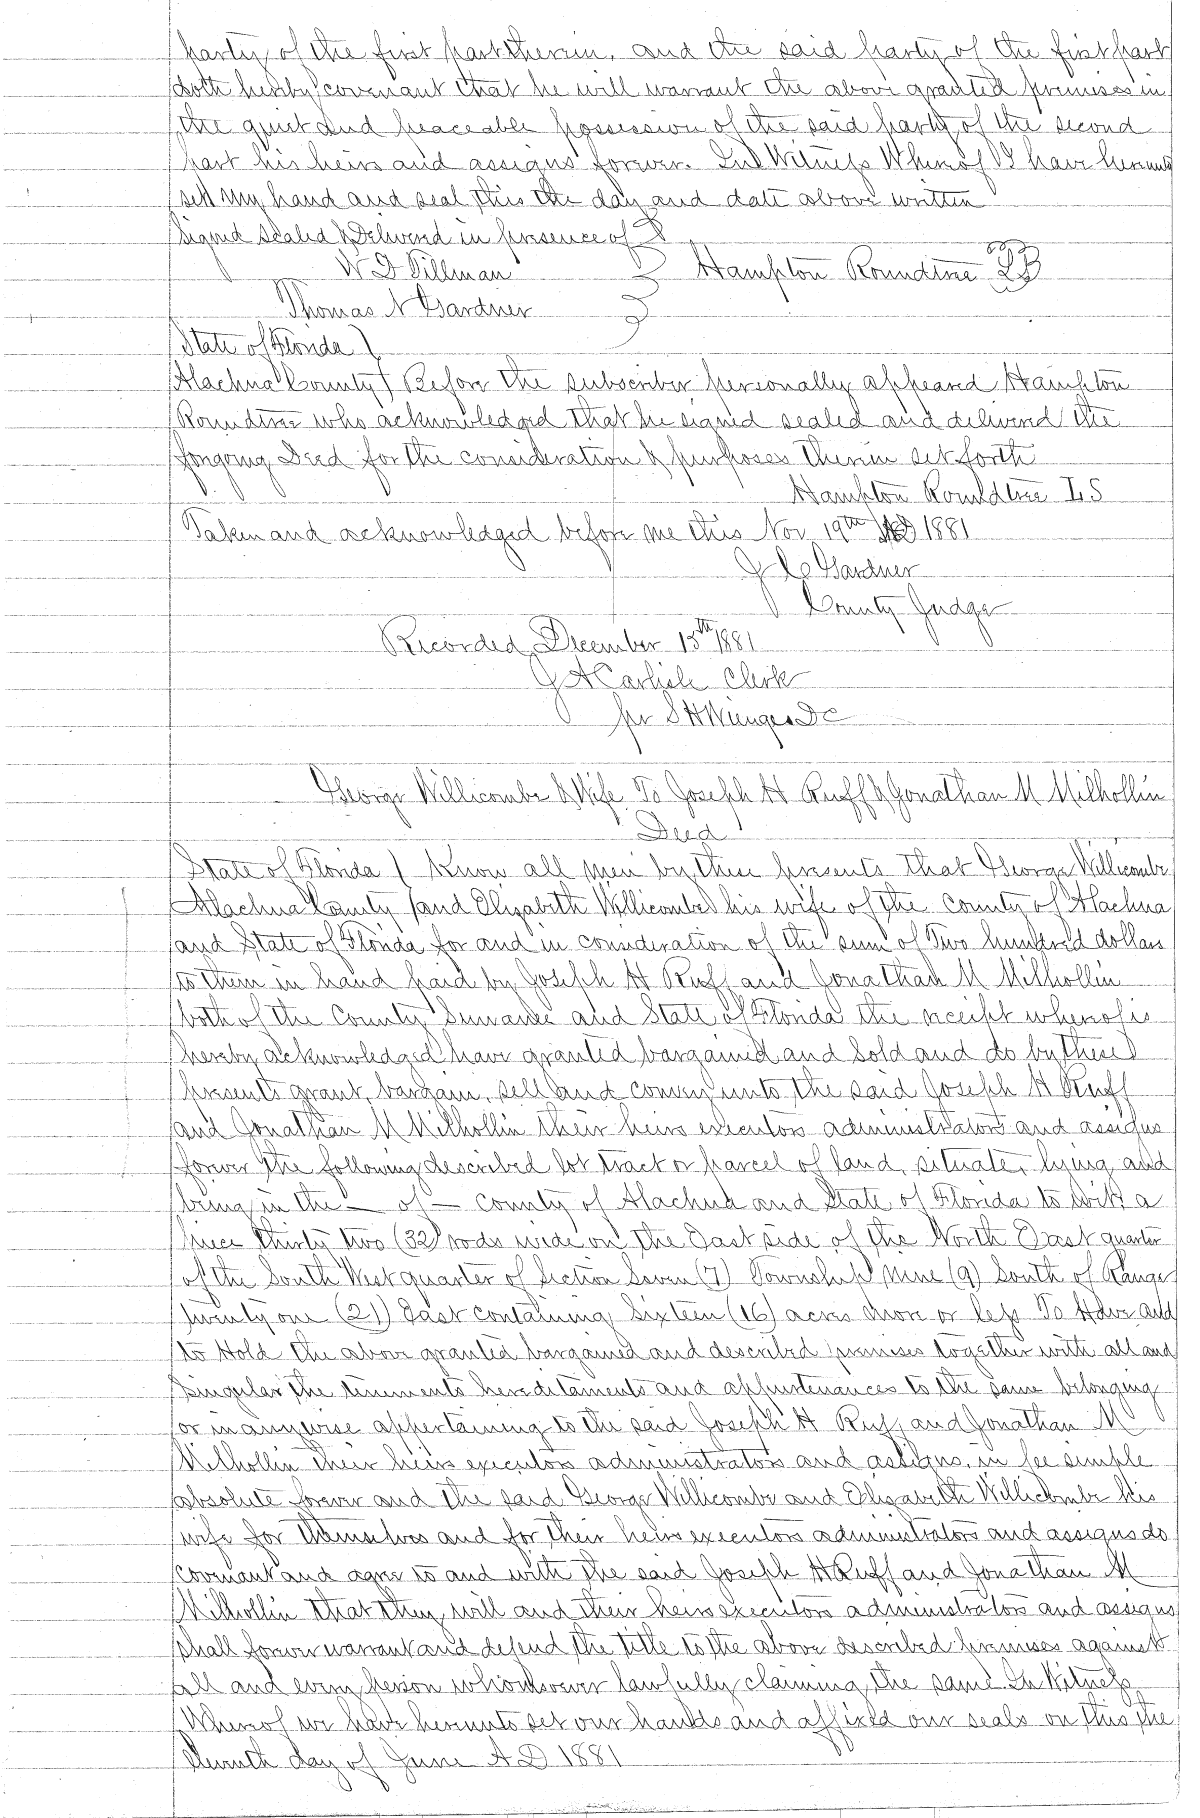 party of the first part therein, and the said party of the first part
doth hereby covenant that he will warrant the above granted premises in
the quiet and peaceable possession of the said party of the second
part his heirs and assigns forever. In Witness Whereof I have hereunto
set my hand and seal this the day and date above written
Signed Sealed & Delivered in presence of
W D Tillman Hampton Roundtree LS
Thomas N Gardner
State of Florida
Alachua County Before the subscriber personally appeared Hampton
Roundtree who acknowledged that he signed sealed and delivered the
forgoing Deed for the consideration & purposes therein set forth
Hampton Roundtree LS
Taken and acknowledged before me this Nov 19th AD 1881
J C Gardner
County Judge
Recorded December 15th 1881
J A Carlisle Clerk
per S H Wienges DC
George Willicombe & Wife To Joseph H Ruff & Jonathan M Milhollin
Deed
State of Florida Know all men by these presents that George Willicombe
Alachua County and Elizabeth Willicombe his wife of the County of Alachua
and State of Florida for and in consideration of the sum of Two hundred dollars
to them in hand paid by Joseph H Ruff and Jonathan M Milhollin
both of the County Suwanee and State of Florida the receipt whereof is
hereby acknowledged have granted bargained and Sold and do by these
presents grant, bargain, sell and convey unto the said Joseph H Ruff
and Jonathan M Milhollin their heirs executors administrators and assigns
forever the following described lot tract or parcel of land, situate, lying and
being in the — of — County of Alachua and State of Florida to wit a
piece thirty two (32) rods wide on the East side of the North East quarter
of the South West quarter of Section Seven (7) Township Nine (9) South of Range
twenty one (21) East containing Sixteen (16) acres more or less To Have and
to Hold the above granted bargained and described premises together with all and
Singular the tenements hereditaments and appurtenances to the same belonging
or in anywise appertaining to the said Joseph H Ruff and Jonathan M
Milhollin their heirs executors administrators and assigns, in fee simple
absolute forever and the said George Willicombe and Elizabeth Willicombe his
wife for themselves and for their heirs executors administrators and assigns do
covenant and agree to and with the said Joseph H Ruff and Jonathan M
Milhollin that they will and their heirs executors administrators and assigns
shall forever warrant and defend the title to the above described premises against
all and every person whomsoever lawfully claiming the same In Witness
Whereof we have hereunto set our hands and affixed our seals on this the
eleventh day of June A D 1881